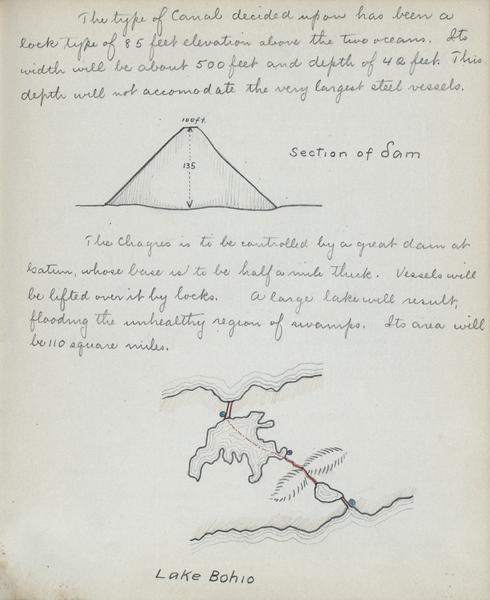 The type of Canal decided upon has been a
lock type of 85 feet elevation above the two oceans. Its
width will be about 500 feet and depth of 42 feet. This
depth will not accomodate the very largest steel vessels.
100ft.
135
Section of dam
The Chagres is to be controlled by a great dam at
Gatun, whose base is to be half a mile thick. Vessels will
be lifted over it by locks. A large lake will result,
flooding the unhealthy region of swamps. Its area will
be 110 square miles.
Lake Bohio